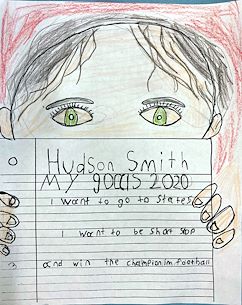 Hudson Smith
My goals 2020
I want to go to states
I want to be short stop
and win the champion in football